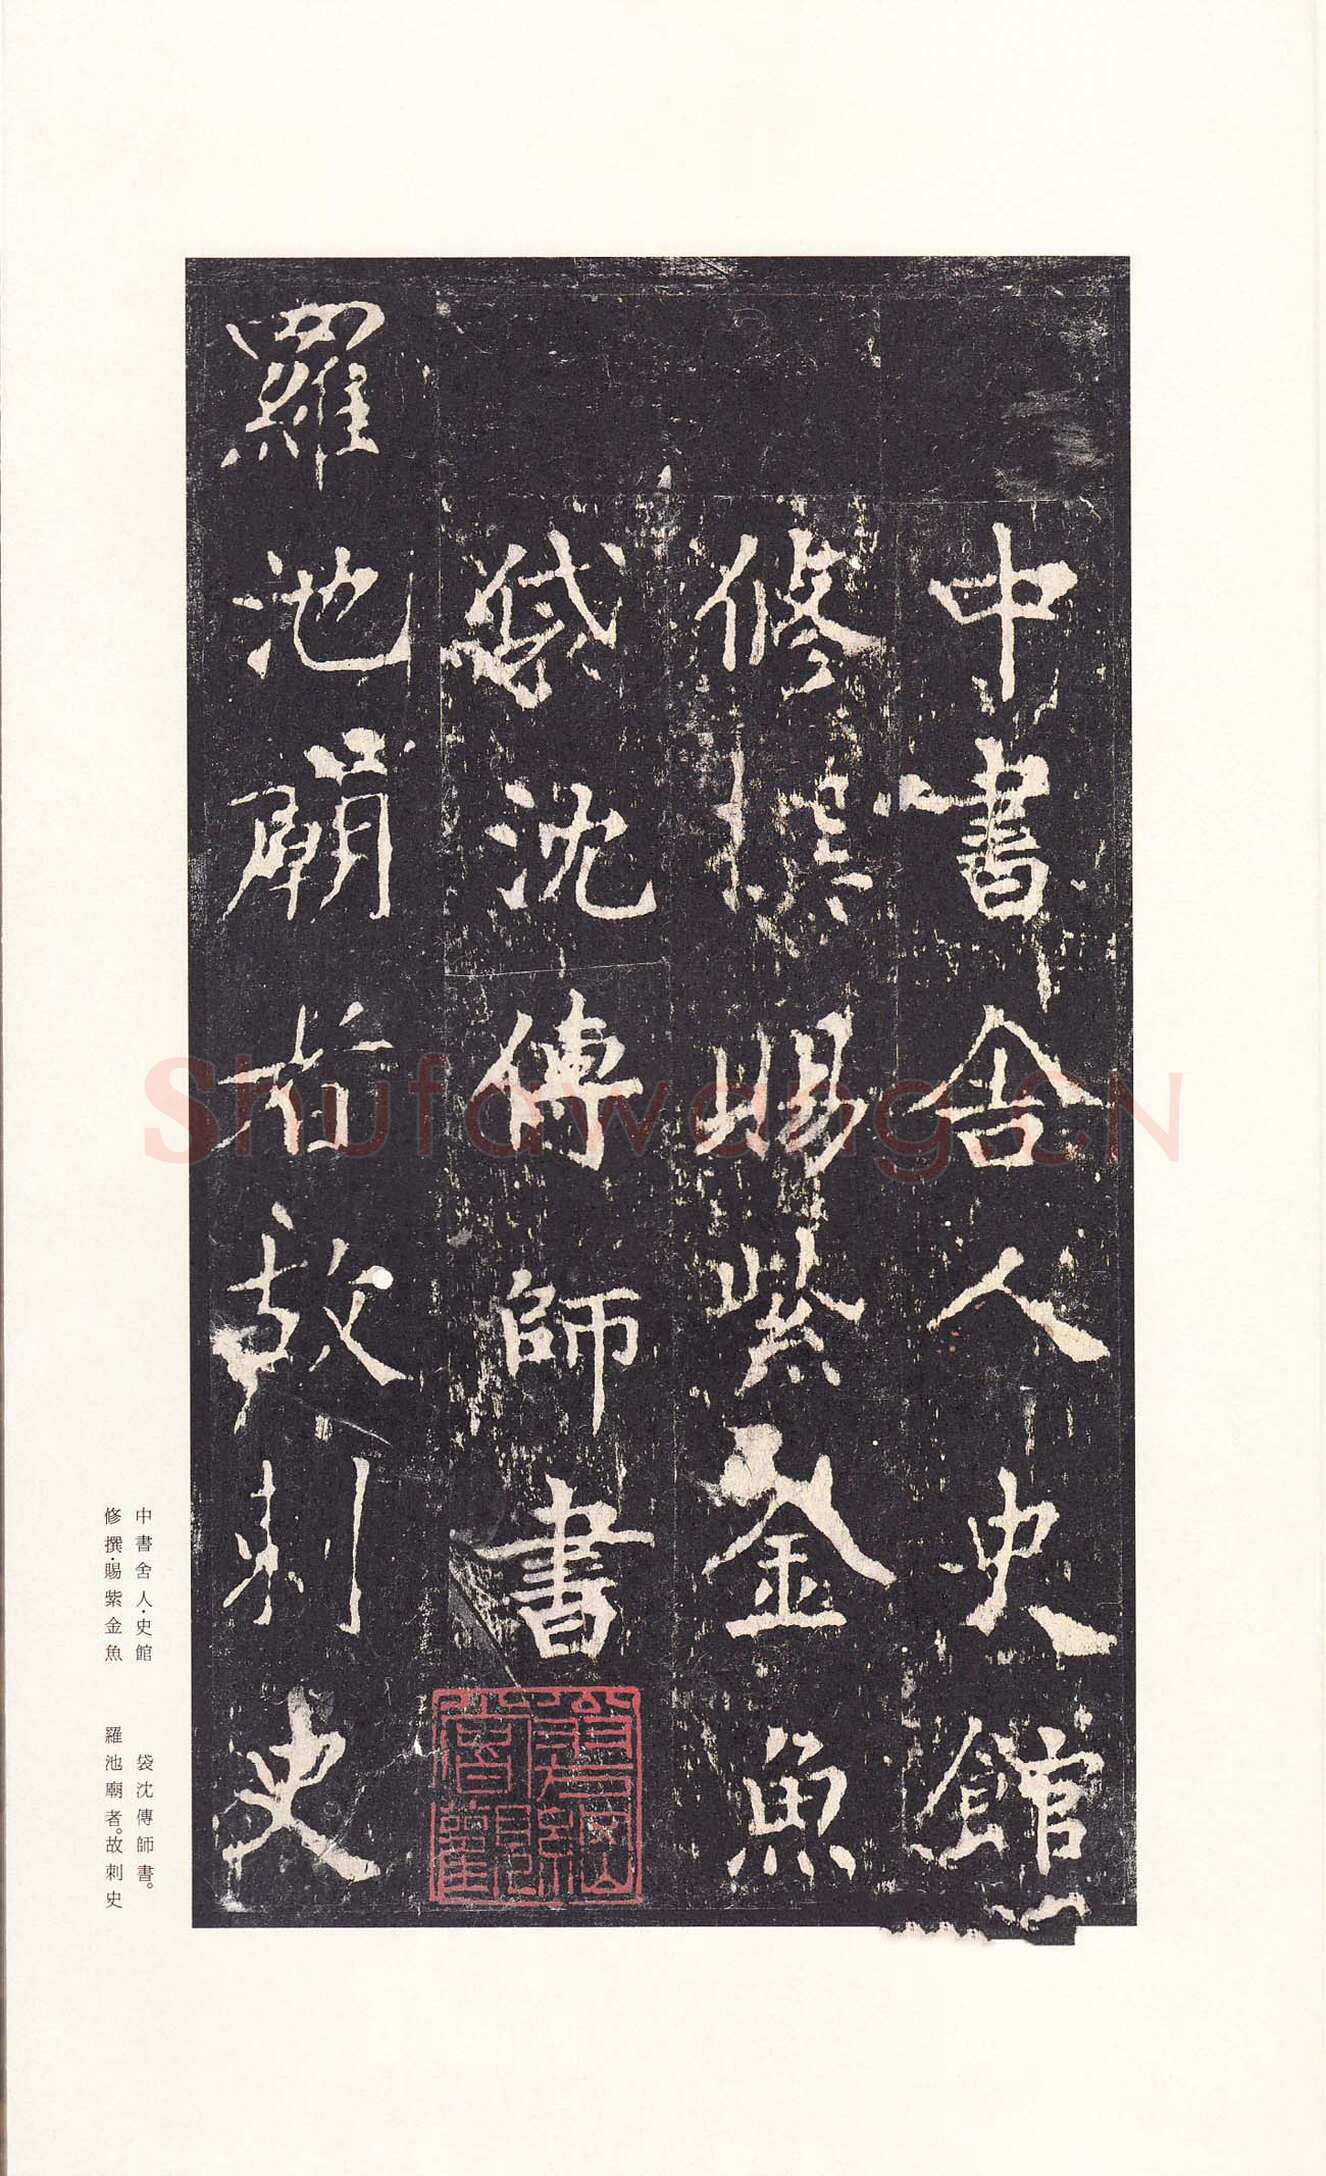 中書舍人史館
修撰賜紫金魚
袋沈傳師書
羅池廟者故刺史
中書舍人·史館
修撰·賜紫金魚
袋沈傳師書。
羅池廟者。故刺史
Shufawang.CN